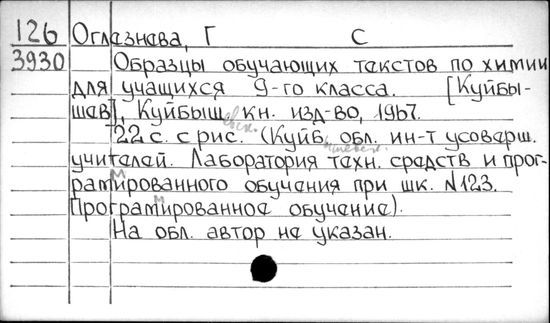 126 Оглазнева, Г С
3930 Образцы обучающих текстов по химии
для учащихся 9-го класса. [Куйбы-
шев], Куйбышевск. кн. изд-во, 1967.
22 с. с рис. (Куйбышевск. обл. ин-т усоверш.
учителей. Лаборатория техн. средств и прог-
раммированного обучения при шк. N123.
Программированное обучение).
На обл. автор не указан.